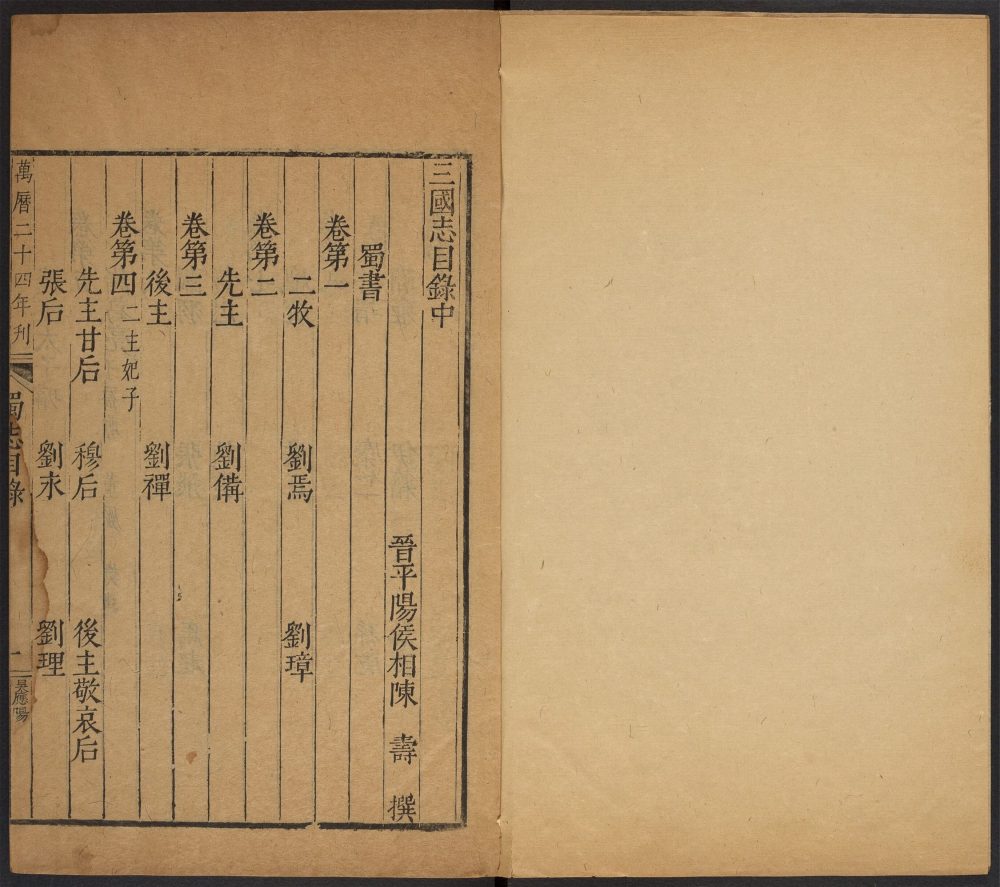 三國志目錄中
晉平陽侯相陳 壽 撰
蜀書
卷第一
二牧 劉焉 劉璋
卷第二
先主 劉備
卷第三
後主 劉禪
卷第四 二主妃子
先主甘后 穆后 後主敬哀后
張后 劉永 劉理
萬曆二十四年刊
蜀志目錄
一
吳應陽